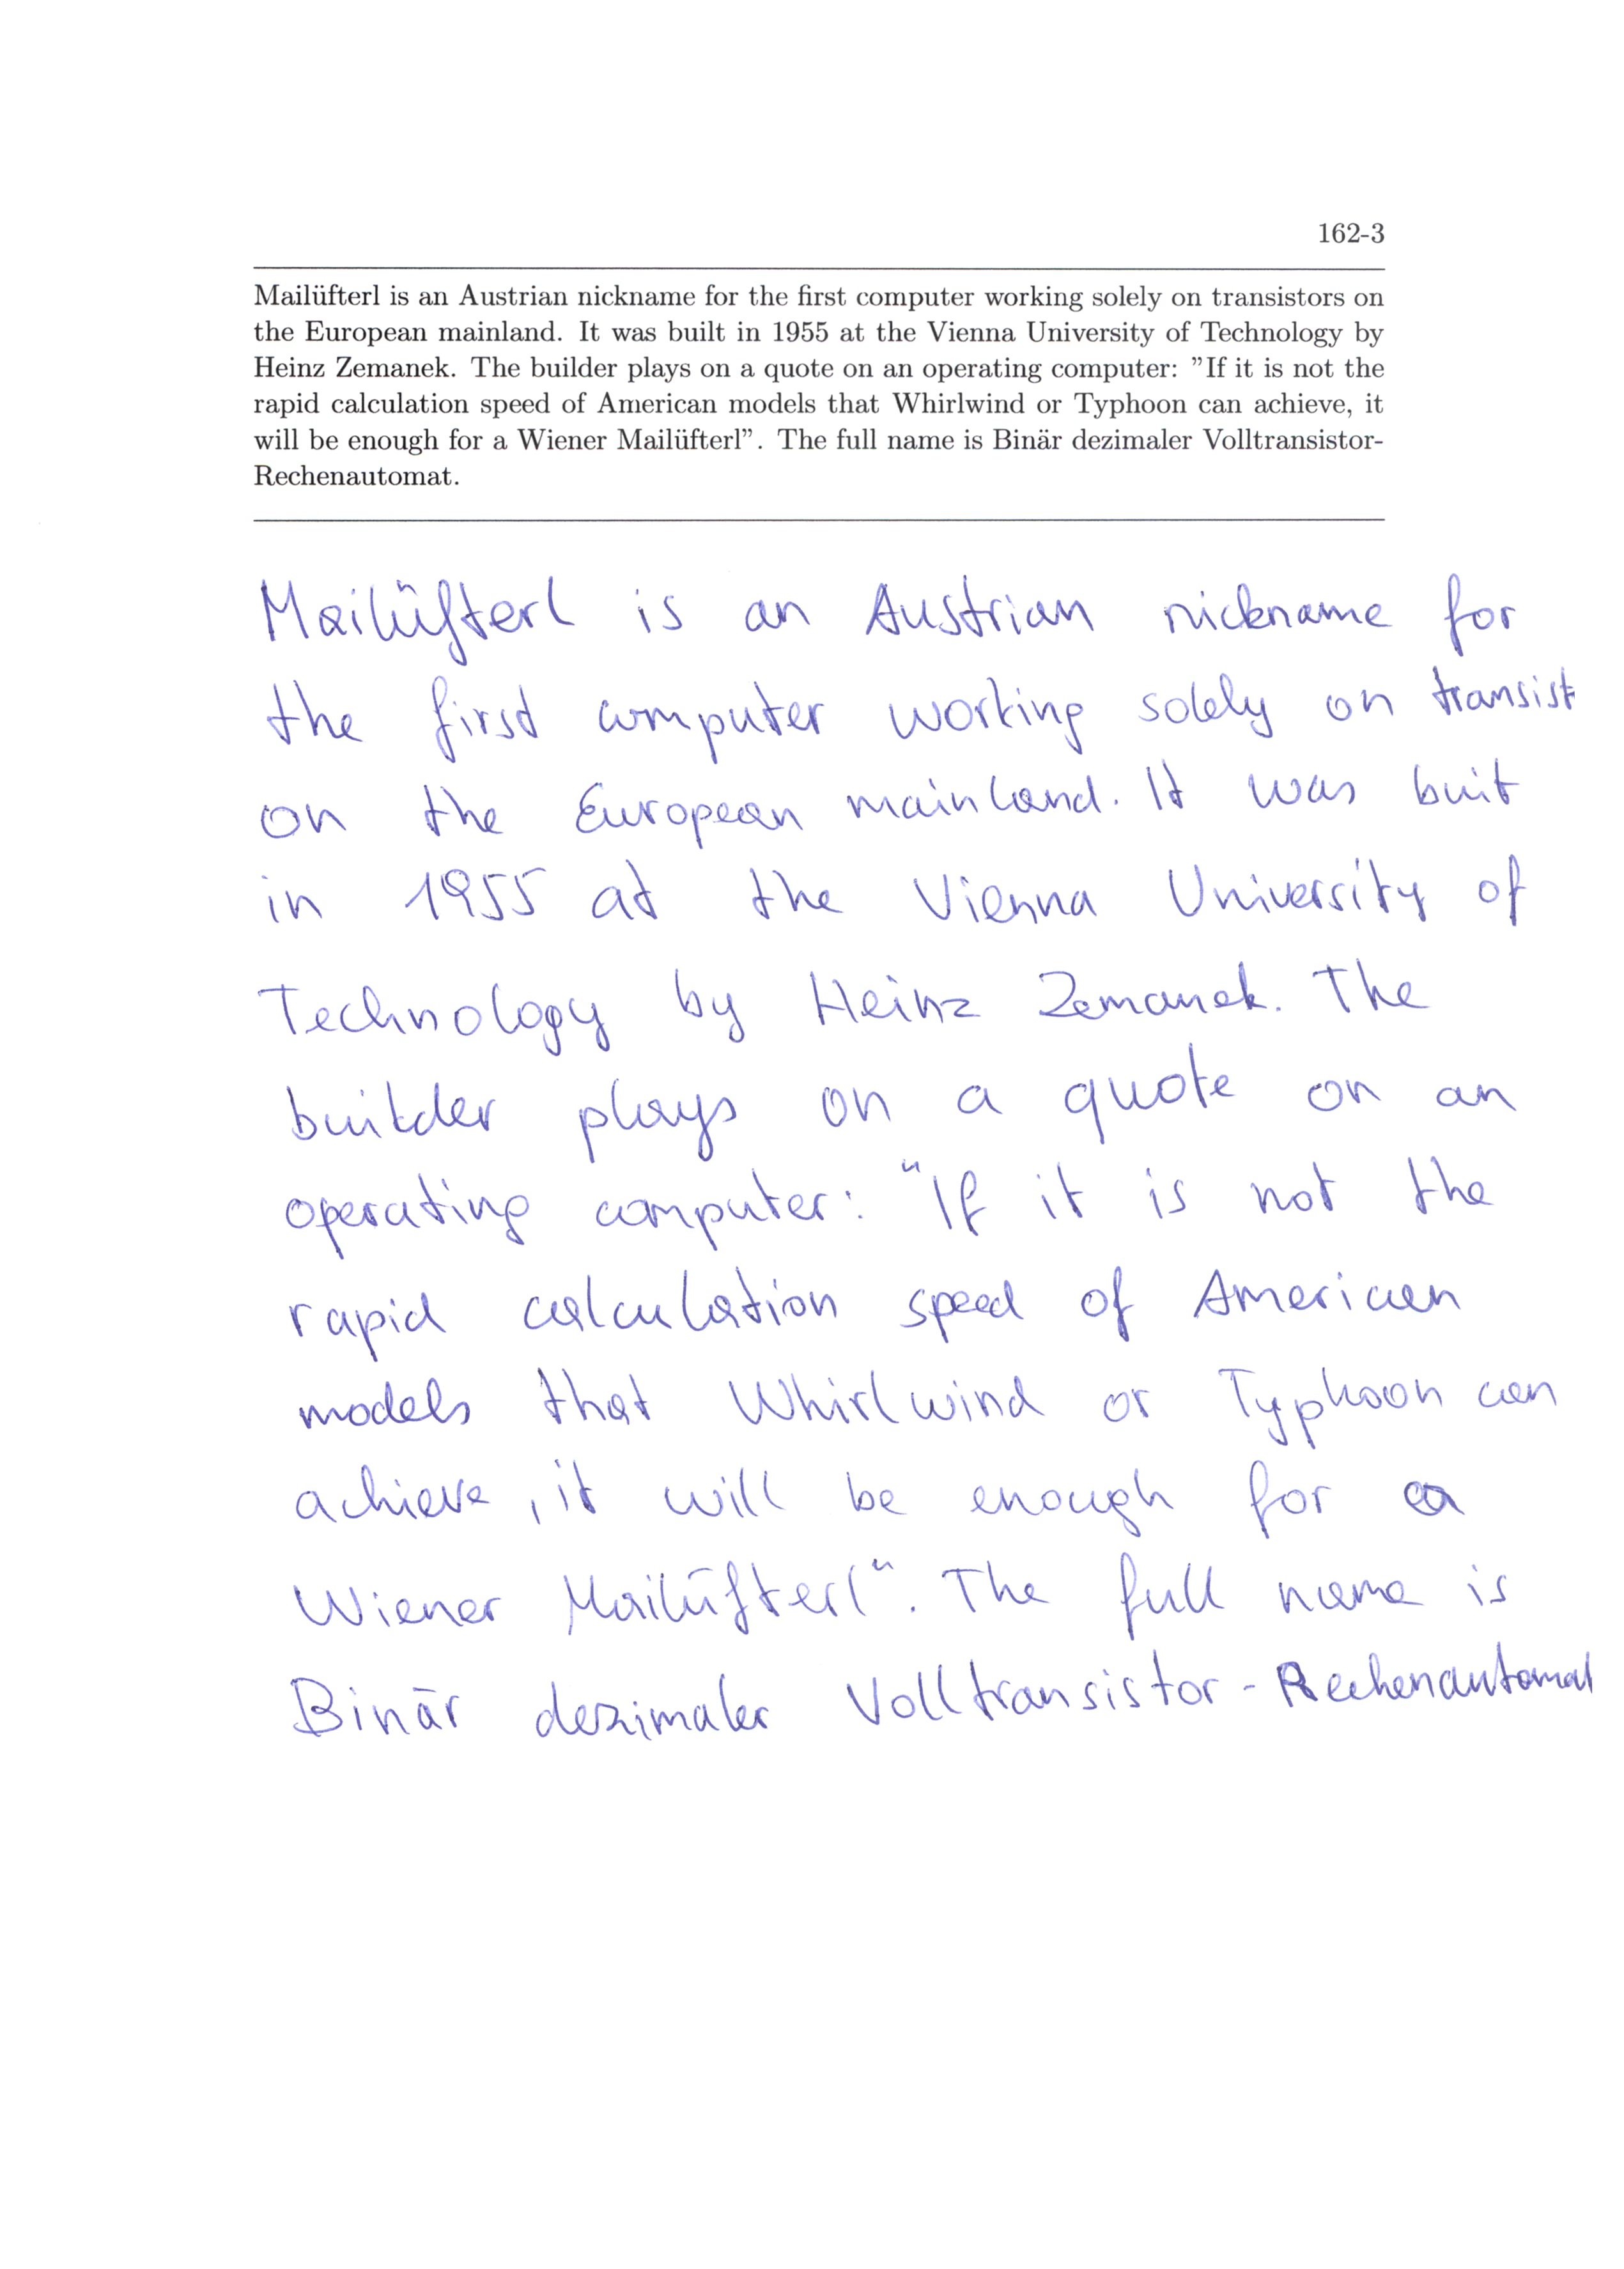 162-3
Mailüfterl is an Austrian nickname for the first computer working solely on transistors on
the European mainland. It was built in 1955 at the Vienna University of Technology by
Heinz Zemanek. The builder plays on a quote on an operating computer: ”If it is not the
rapid calculation speed of American models that Whirlwind or Typhoon can achieve, it
will be enough for a Wiener Mailüfterl”. The full name is Binär dezimaler Volltransistor-
Rechenautomat.
Mailüfterl is an Austrian nickname for
the first computer working solely on transist
on the European mainland. It was buit
in 1955 at the Vienna University of
Technology by Heinz Zemanek. The
builder plays on a quote on an
operating computer: "If it is not the
rapid calculation speed of American
models that Whirlwind or Typhoon can
achieve, it will be enough for a
Wiener Mailüfterl". The full name is
Binär dezimaler Volltransistor-Rechenautomat